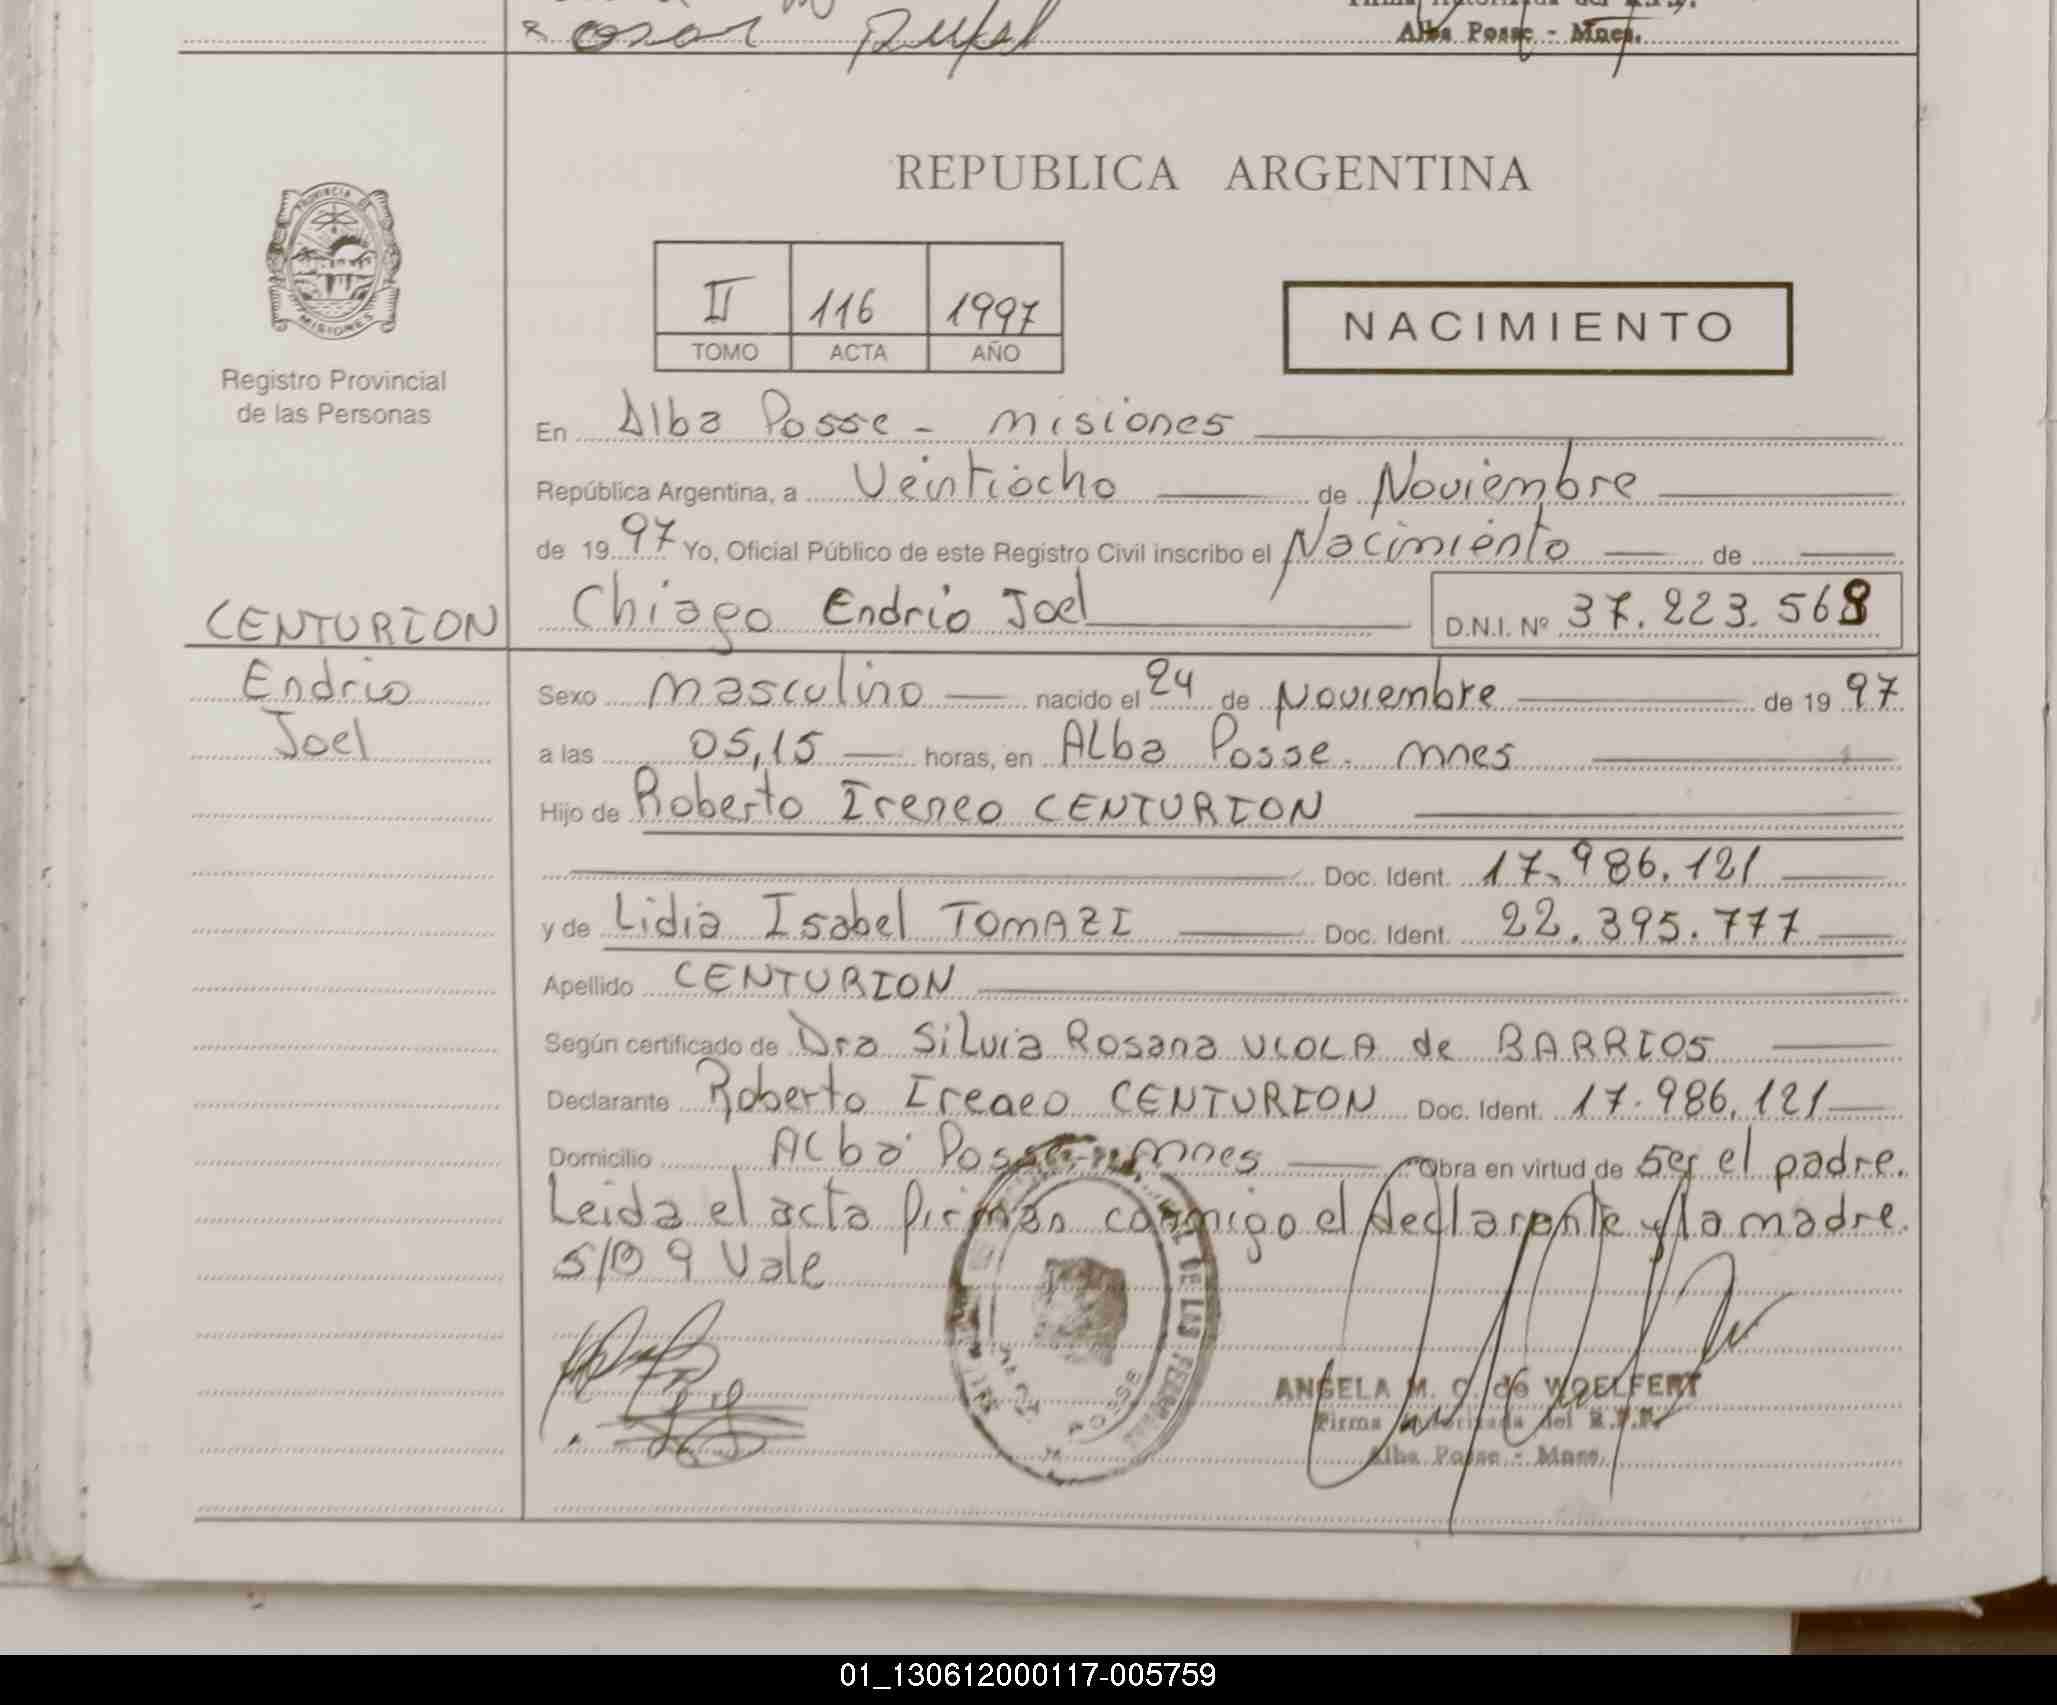 Alba Posse - Mnes.
REPUBLICA ARGENTINA
PROVINCIA DE
MISIONES
Registro Provincial
de las Personas
II 116 1997
TOMO ACTA AÑO
NACIMIENTO
En Alba Posse - misiones
República Argentina, a Veintiocho de Noviembre
de 1997 Yo, Oficial Público de este Registro Civil inscribo el Nacimiento de
CENTURION Chiago Endrio Joel D.N.I. Nº 37.223.568
Endrio Sexo masculino nacido el 24 de Noviembre de 1997
Joel a las 05,15 horas, en Alba Posse. mnes
Hijo de Roberto Ireneo CENTURION
Doc. Ident. 17.986.121
y de Lidia Isabel TOMAZI Doc. Ident. 22.395.777
Apellido CENTURION
Según certificado de Dra Silvia Rosana VIOLA de BARRIOS
Declarante Roberto Ireneo CENTURION Doc. Ident. 17.986.121
Domicilio Alba Posse - mnes Obra en virtud de ser el padre.
Leida el acta firman conmigo el declarante y la madre.
S/B 9 Vale
ANGELA M. C. de WOELFERT
Firma Autorizada del R.P.P.
Alba Posse - Mnes.
01_130612000117-005759